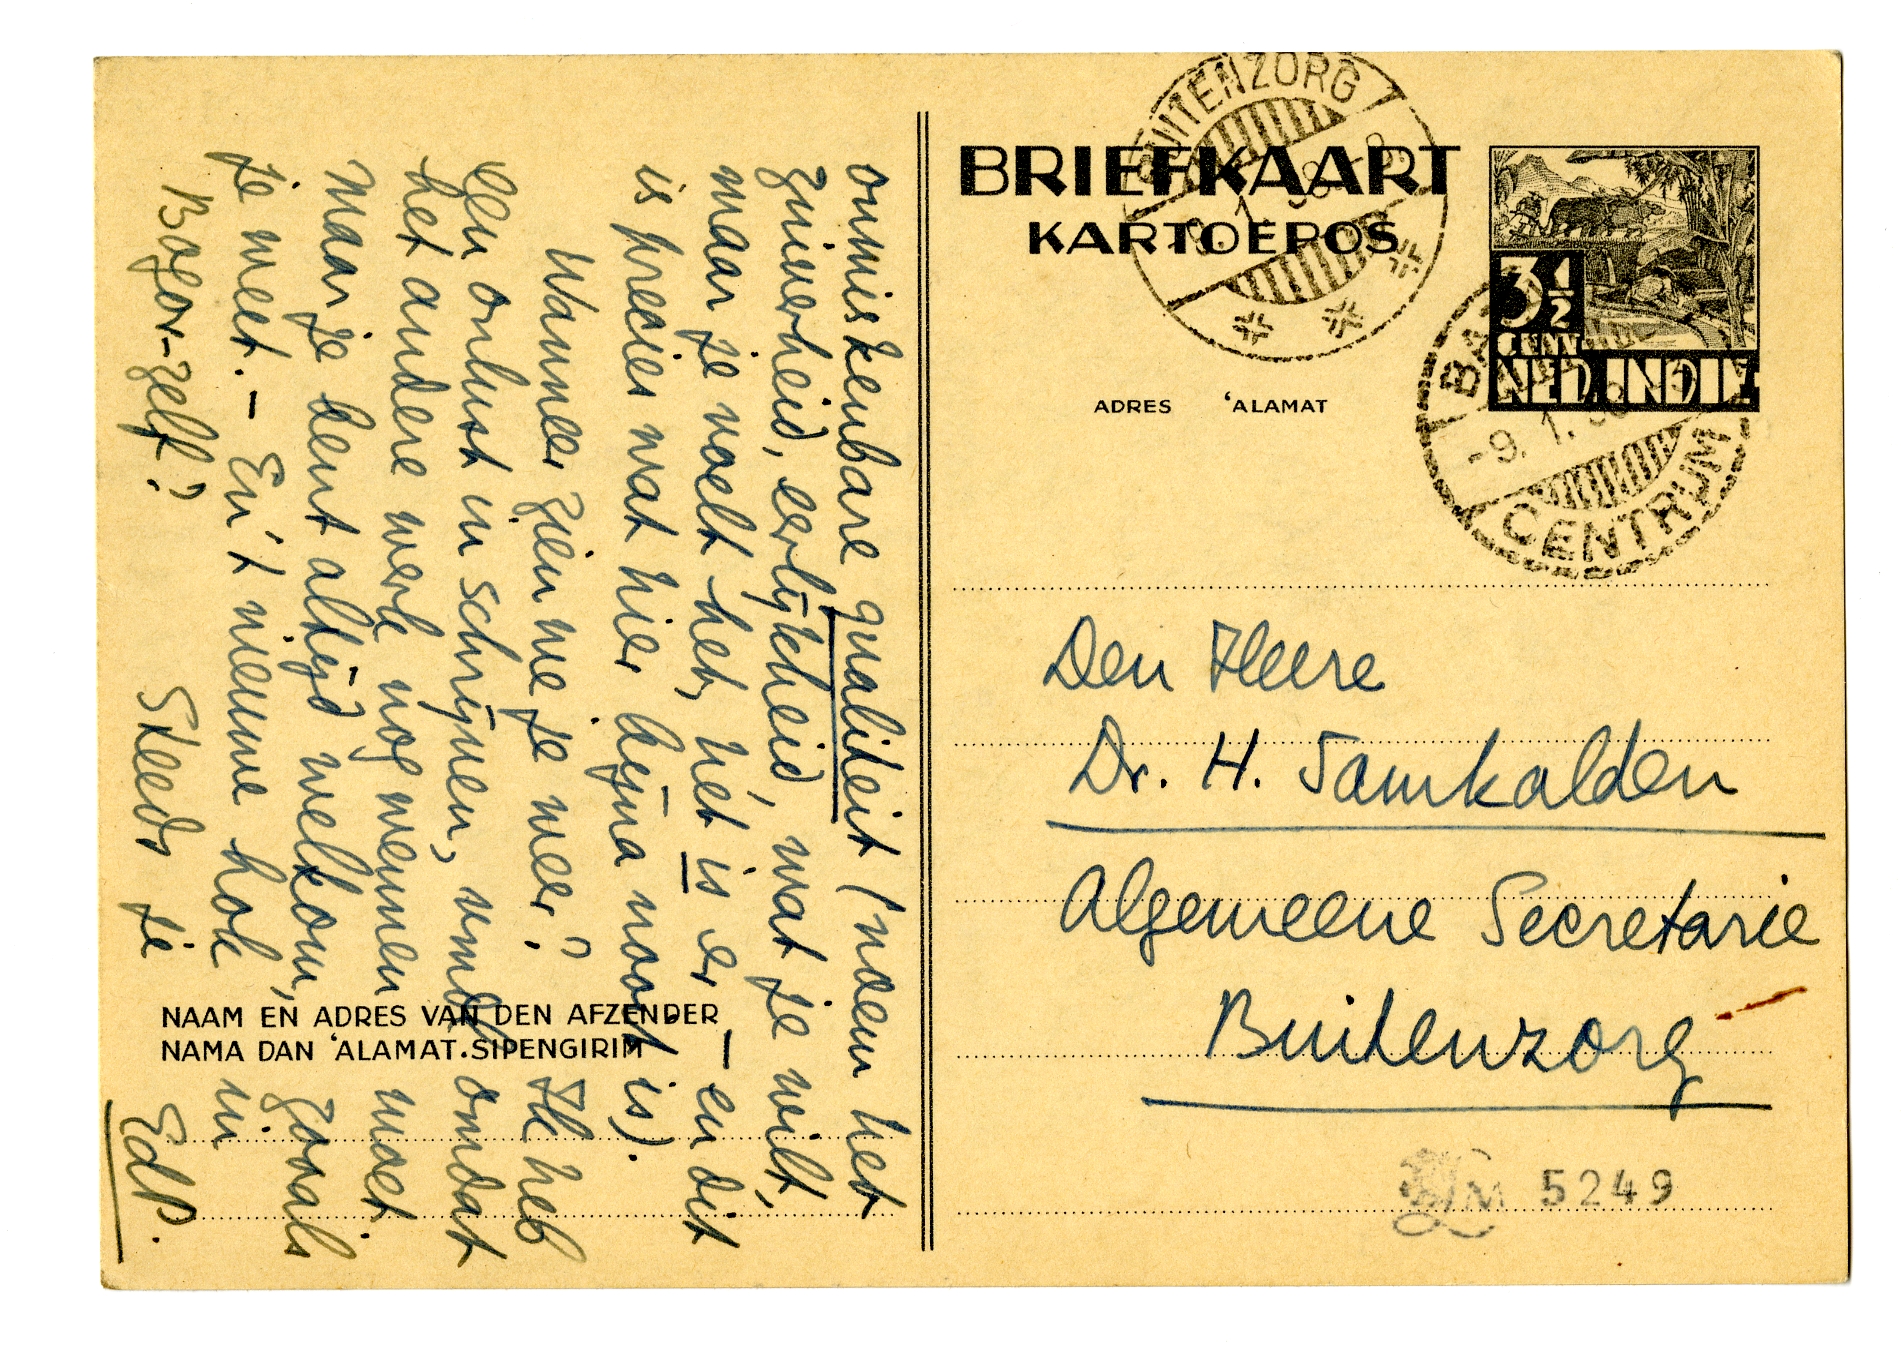 onmiskenbare qualiteit (noem het
zuiverheid, eerlijkheid, wat je wilt,
maar je voelt het, hét is er — en dit
is precies wat hier bijna nooit is).
Wanneer zien we je weer? Ik heb
een onlust in schrijven, omdat
het andere werk nog wennen moet.
Maar je bent altijd welkom, zooals
je weet. — En 't nieuwe hok in
Bogor-zelf?
Steeds je
EdP.
NAAM EN ADRES VAN DEN AFZENDER
NAMA DAN 'ALAMAT.SIPENGIRIM
BRIEFKAART
KARTOEPOS
BUITENZORG
9.1.38-8
3½
CENT
NED.INDIE
BA
-9.1.38
CENTRUM
ADRES 'ALAMAT
Den Heere
Dr. H. Samkalden
Algemeene Secretarie
Buitenzorg
LM 5249